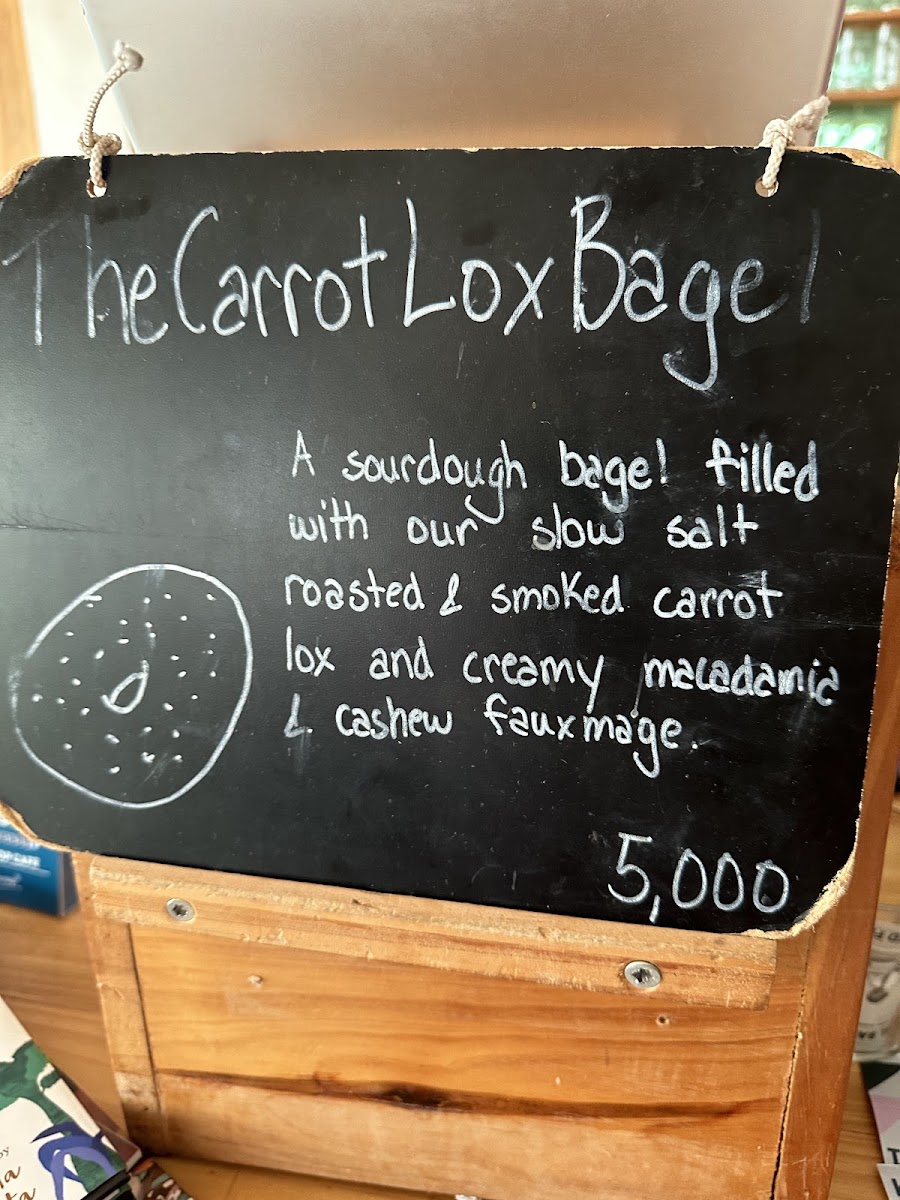 The Carrot Lox Bagel
A sourdough bagel filled
with our slow salt
roasted & smoked carrot
lox and creamy macadamia
& cashew fauxmage.
5,000